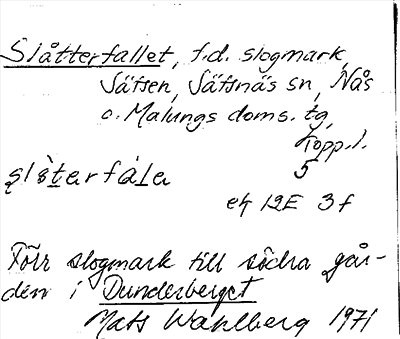 Slåtterfallet, f.d. slogmark,
Säfsen, Säfsnäs sn, Nås
o. Malungs doms. tg,
Kopp. l.
5
slåterfala
ek 12E 3f
Förr slogmark till södra går-
den i Dunderberget
Mats Wahlberg 1971